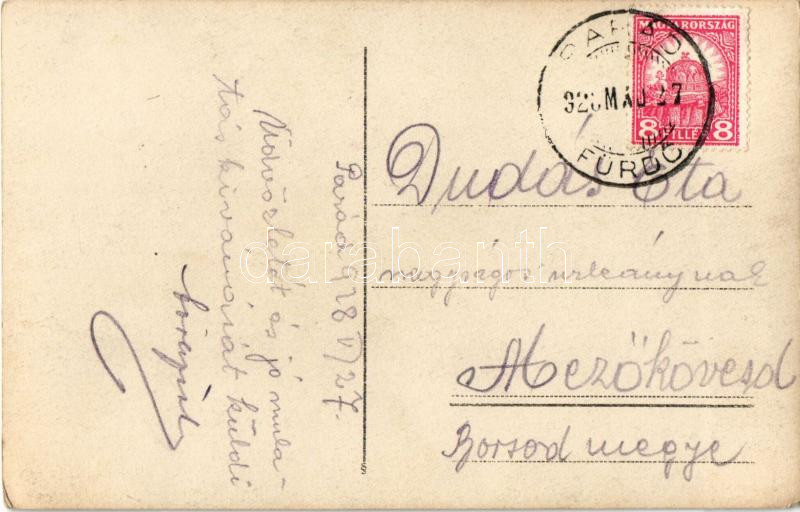 Parád 928 V/27.
Üdvözletét és jó mula-
tás kivánását küldi
PARÁD
FÜRDŐ
928 MÁJ 27
MAGYARORSZÁG
8 FILLÉR 8
Dudás Éta
nagyságos urleánynak
Mezőkövesd
Borsod megye
darabanth